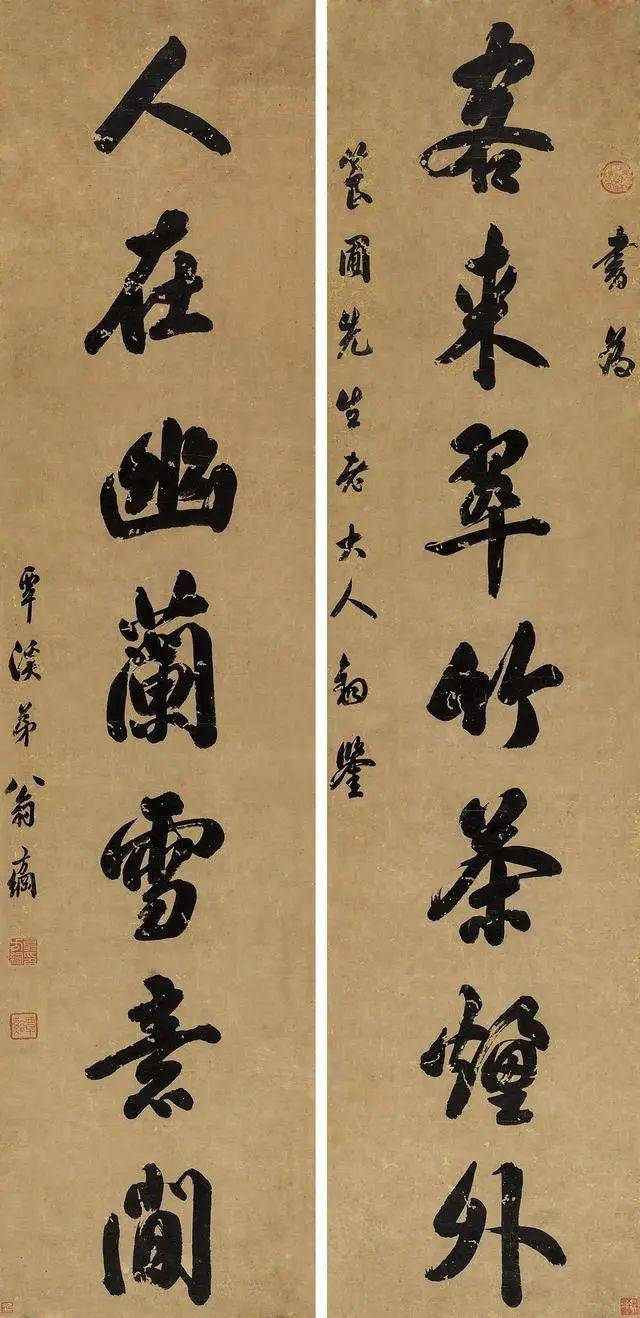 書為
客來翠竹茶煙外
圃先生老大人鈞鑒
人在幽蘭雪意間
覃溪弟翁方綱